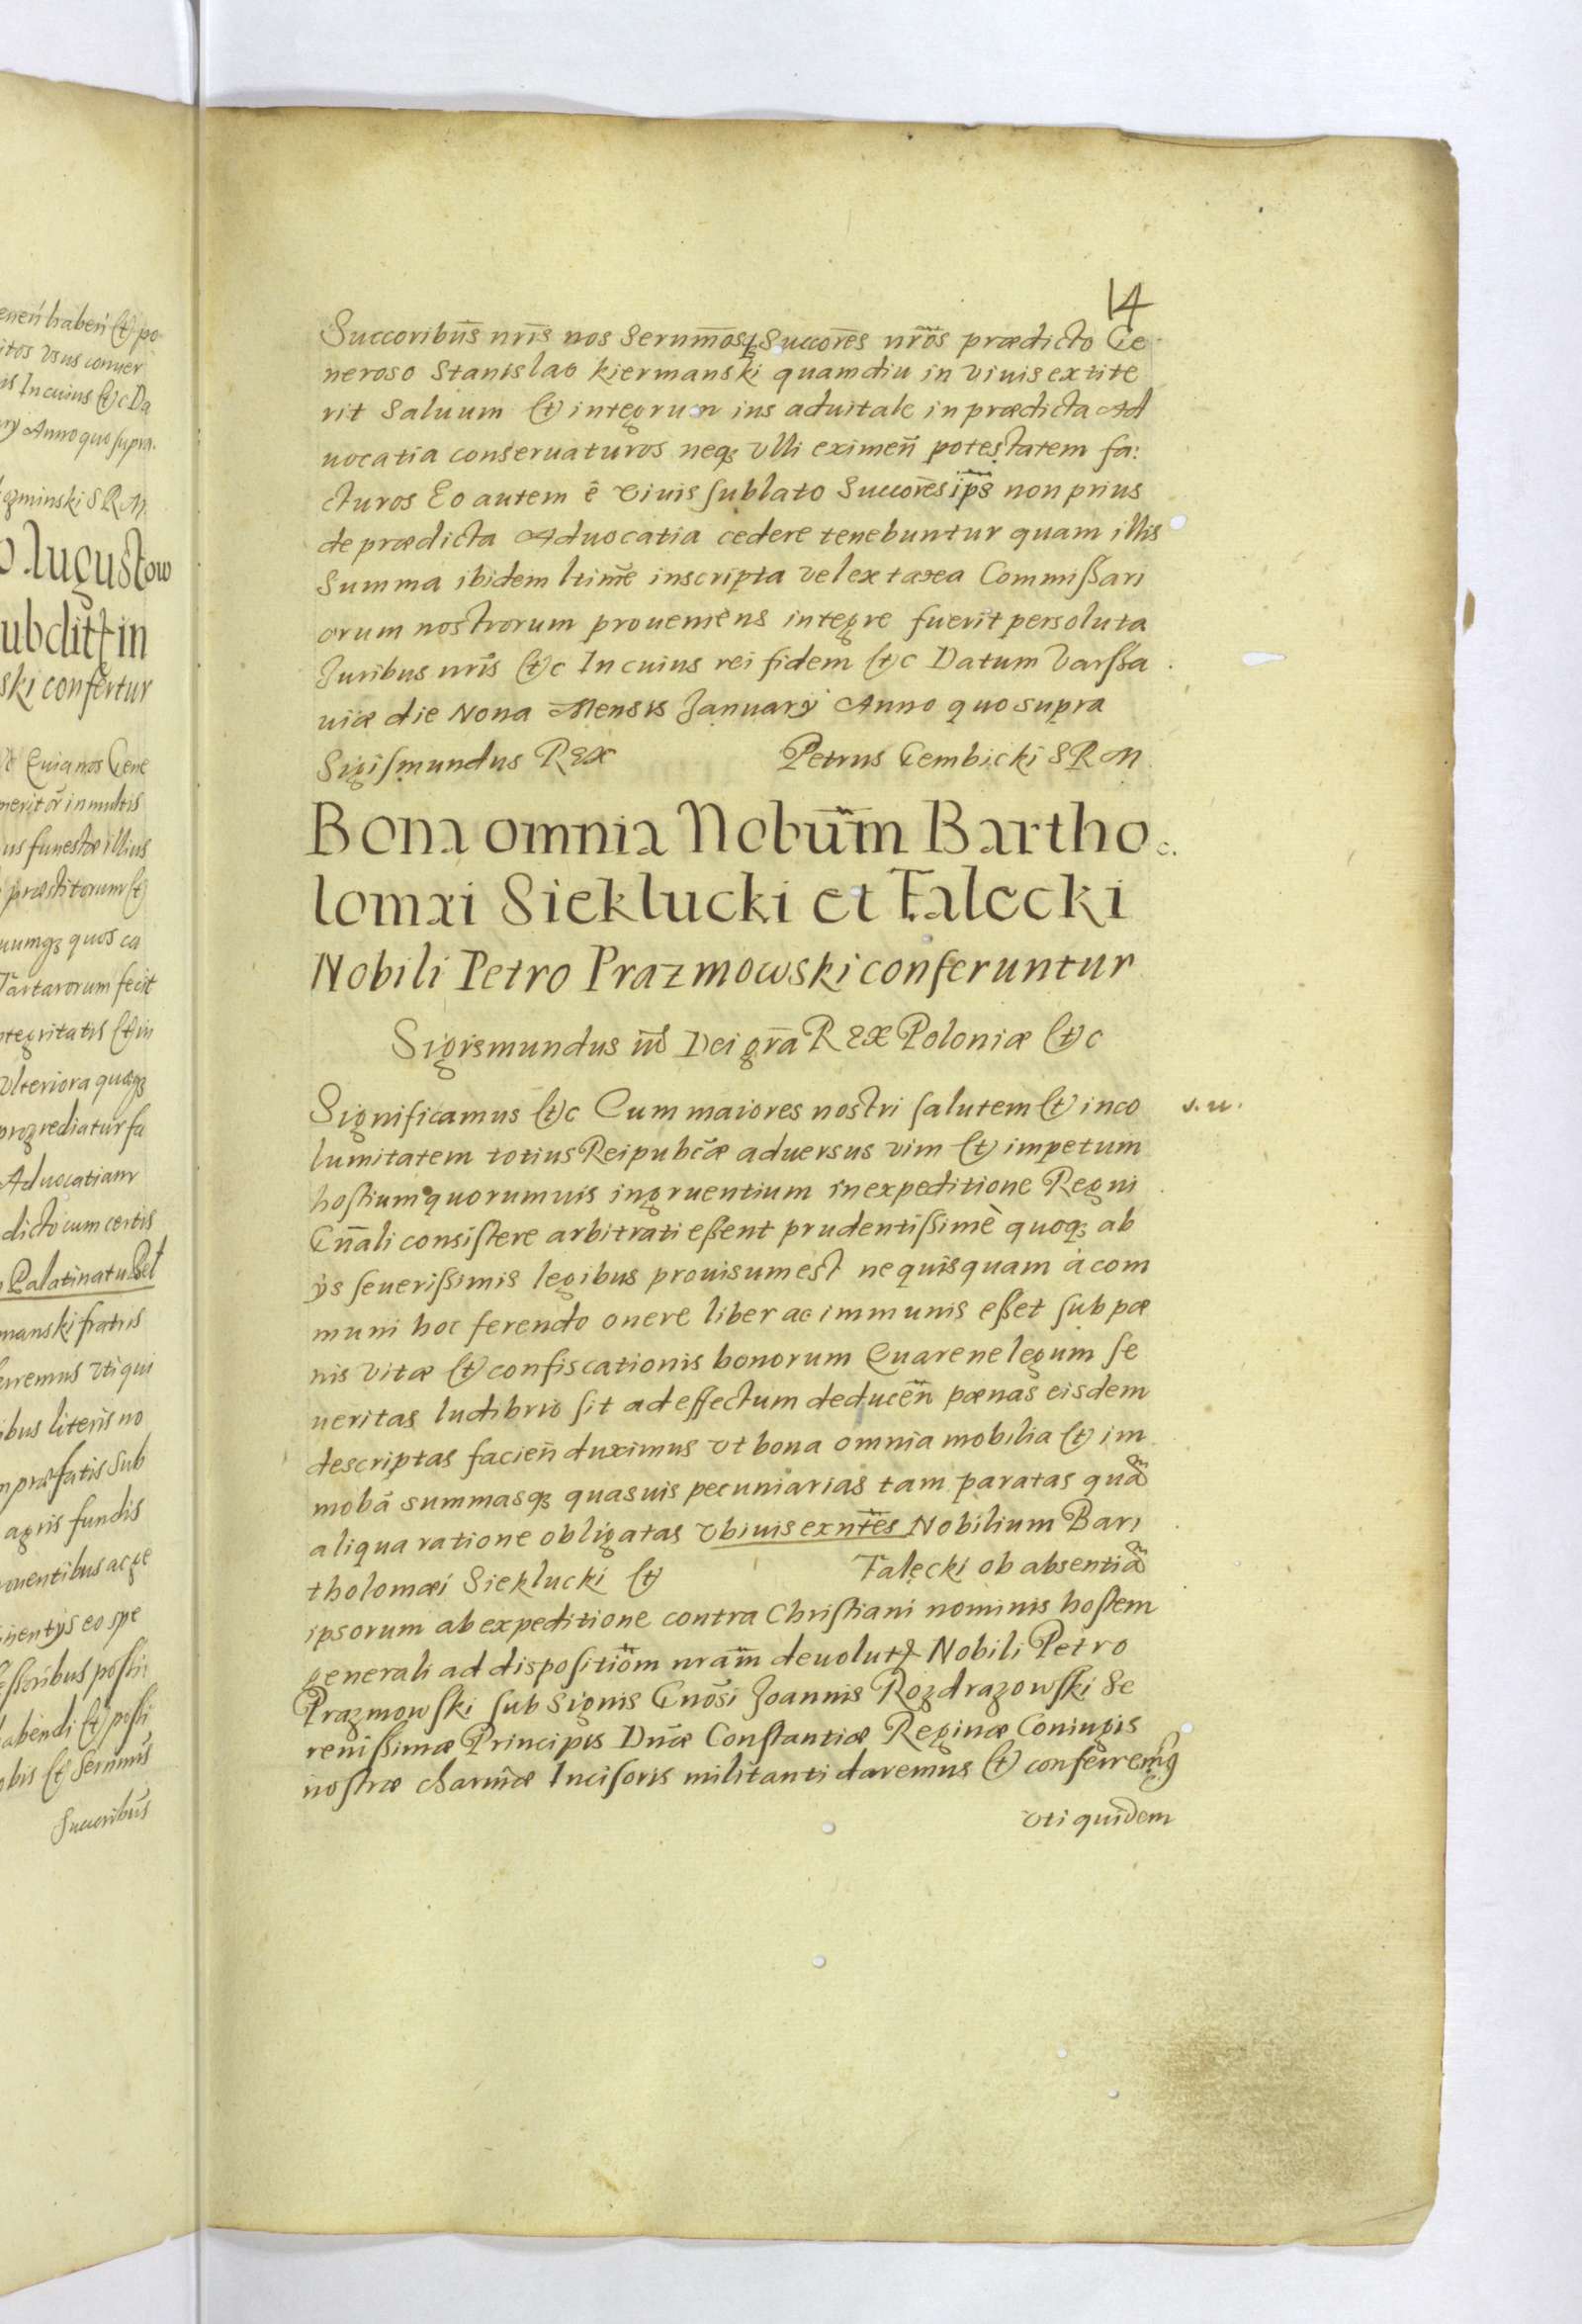 enen̄ haben̄ (et) po
itos vsus conuer
is In cuius (et)c Da
ry Anno quo supra.
ozminski S R M
o Augustow
ubditt in
ski confertur
Quia nos Gene
meritor̄ in multis
us funestæ illius
præstitorum (et)
uumq₃ quos ca
Tartarorum fecit
ntegritatis (et) in
vlteriora quoq₃
progrediatur fa
Aduocatiam
dicto cum certis
Palatinatu Bel
manski fratris
ferremus vti qui
ibus literis no
præfatis sub
agris fundis
nentijs eo spe
abendi (et) possi
obis (et) Sermūs
Succoribūs
14
Succoribūs nrīs nos Serīmos₃ (et) Succorēs nrōs prædicto Ge
neroso Stanislao kiermanski quamdiu in viuis extite
rit saluum (et) integrum ius aduitale in prædicta Ad
uocatia conseruaturos neq₃ vlli eximen̄ potestatem fa:
cturos Eo autem ē viuis sublato Succorēs ip̄s non prius
de prædicta Aduocatia cedere tenebuntur quam illis
summa ibidem ltimē inscripta vel ex taxa Commißari
orum nostrorum proueniens integre fuerit persoluta
Juribus nrīs (et)c In cuius rei fidem (et)c Datum Varßa
uiæ die Nona Mensis Januarÿ Anno quo supra
Sigismundus Rex Petrus Gembicki S R M
Bona omnia Nobūm Bartho
lomæi Sieklucki et Falęcki
Nobili Petro Prazmowski conferuntur
Sigismundus iiī Dei grā Rex Poloniæ (et)c
Significamus (et)c Cum maiores nostri salutem (et) inco
lumitatem totius Reipubcǣ aduersus vim (et) impetum
hostium quorumuis ingruentium in expeditione Regni
Gn̄ali consistere arbitrati eßent prudentißimè quoq₃ ab
ijs seuerißimis legibus prouisum est ne quisquam à com
muni hoc ferendo onere liber ac immunis eßet sub pæ
nis vitæ (et) confiscationis bonorum Quare ne legum se
ueritas ludibrio sit ad effectum deducen̄ pænas eisdem
descriptas facien̄ duximus vt bona omnia mobilia (et) im
mobā summasq₃ quasuis pecuniarias tam paratas quā
aliqua ratione obligatas vbiuis exn̄tes Nobilium Bar
tholomæi Sieklucki (et) Falęcki ob absentiā
ipsorum ab expeditione contra Christiani nominis hostem
generali ad dispositiōm nrām deuoluta Nobili Petro
Prazmowski sub signis Gnōsi Joannis Rozdrazowski Se
renißimæ Principis Dnǣ Constantiæ Reginæ Coniugis
nostræ charīmæ Incisoris militanti daremus (et) conferrem₉
vti quidem